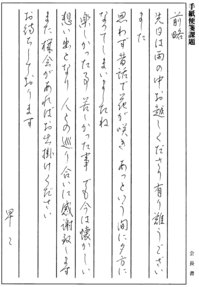 手紙便箋課題
前略
先日は雨の中お越しくださり有り難うござい
ました
思わず昔話で花が咲き あっという間に夕方に
なってしまいましたね
楽しかった事 苦しかった事 でも今は懐かしい
想い出となり 人との巡り合いに感謝致します
また機会があればお出掛けください
お待ちしております
早々
会員番号